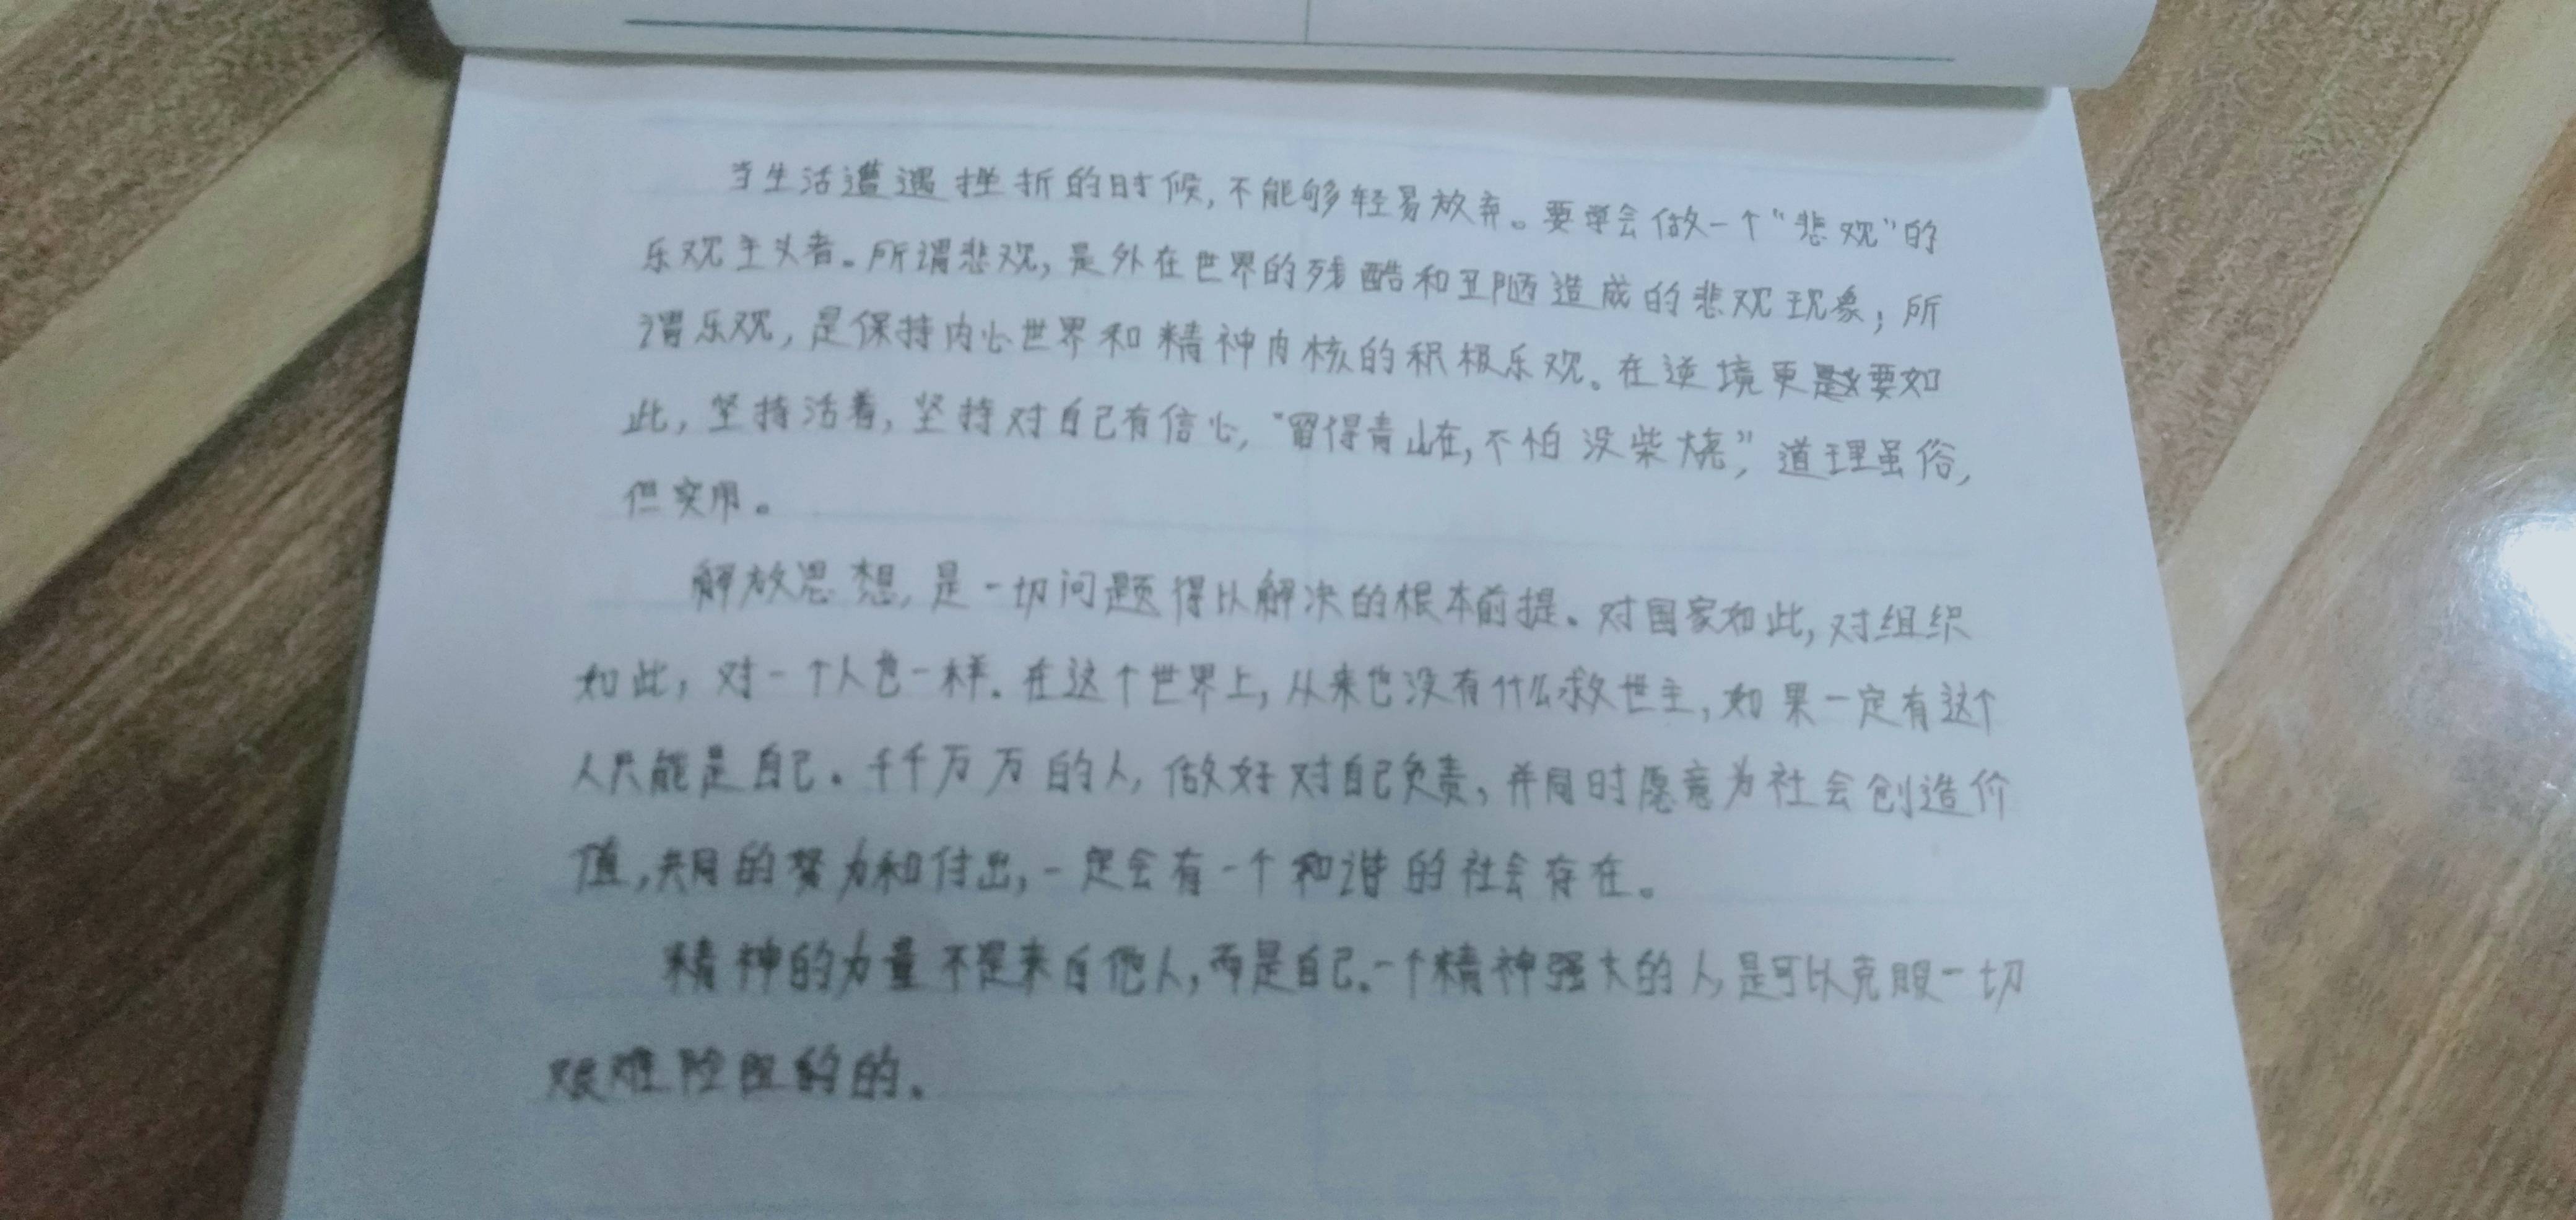 当生活遭遇挫折的时候,不能够轻易放弃。要学会做一个“悲观”的
乐观主义者。所谓悲观,是外在世界的残酷和丑陋造成的悲观现象;所
谓乐观,是保持内心世界和精神内核的积极乐观。在逆境更是要如
此,坚持活着,坚持对自己有信心,“留得青山在,不怕没柴烧”,道理虽俗,
但实用。
解放思想,是一切问题得以解决的根本前提。对国家如此,对组织
如此,对一个人也一样.在这个世界上,从来也没有什么救世主,如果一定有这个
人只能是自己。千千万万的人,做好对自己负责,并同时愿意为社会创造价
值,共同的努力和付出,一定会有一个和谐的社会存在。
精神的力量不是来自他人,而是自己.一个精神强大的人,是可以克服一切
艰难险阻的的.